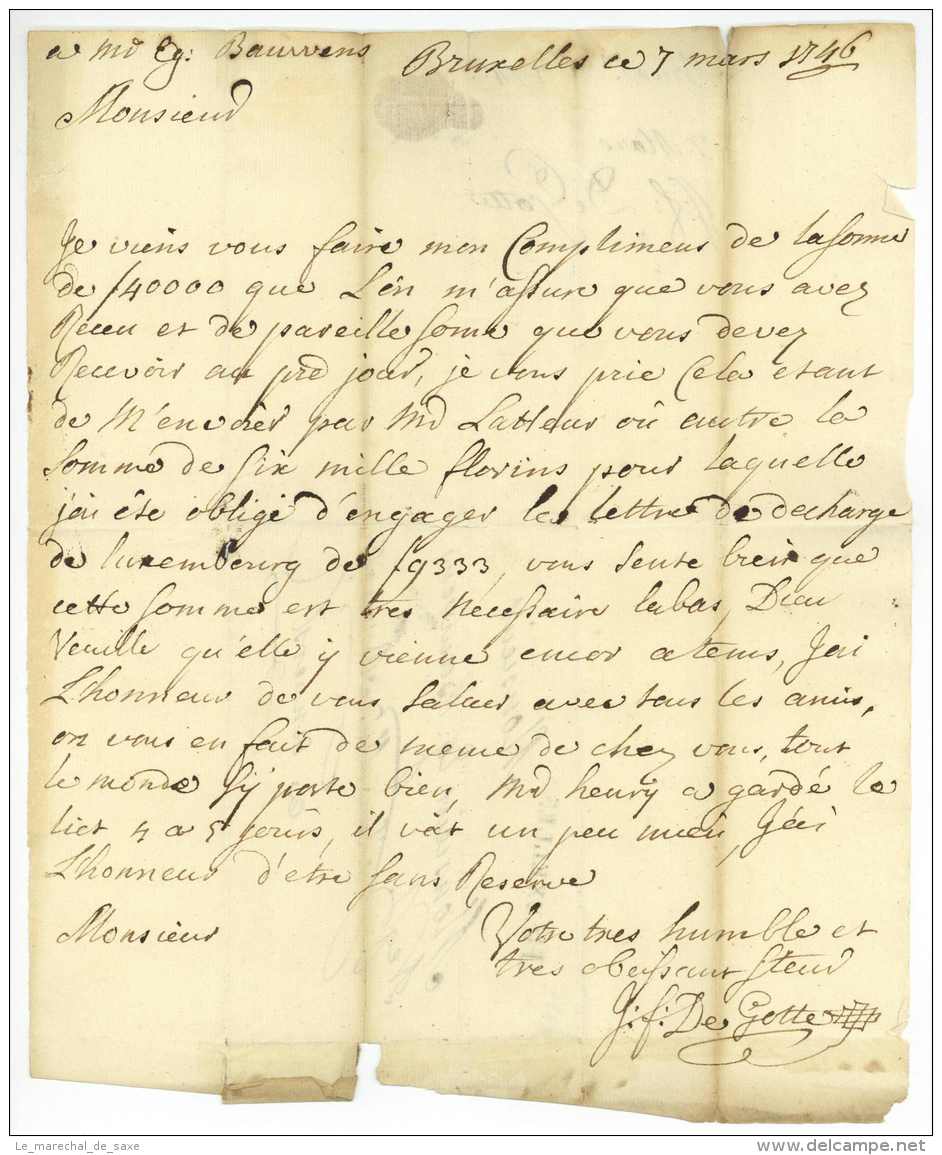 a Md Eg: Bauwens Bruxelles ce 7 mars 1746
Monsieur
Je viens vous faire mon Complimens de lasome
de f40000 que L'on m'assure que vous avez
Receu et de pareille some que vous devez
Recevoir au pred jour, je vous prie Cela etant
de M'envoier par Md Latteur où autre la
Somme de Six mille florins pour laquelle
j'ai èté obligé d'engager les lettre de decharge
de luxembourg de f9333, vous sente bien que
cette somme est tres necessaire labas, Dieu
Veuille qu'elle ÿ vienne encor atems, J'ai
L'honneur de vous Saluer avec tous les amis,
on vous en fait de meme de chez vous, tout
le monde S'ÿ porte bien, Md henrÿ a gardé le
lict 4 a 5 jours, il vat un peu mieu, J'ai
L'honneur d'etre sans Reserve
Monsieur Votre tres humble et
tres obeissant Steur
J: f: De Gotte
Le_marechal_de_saxe
delcampe.net